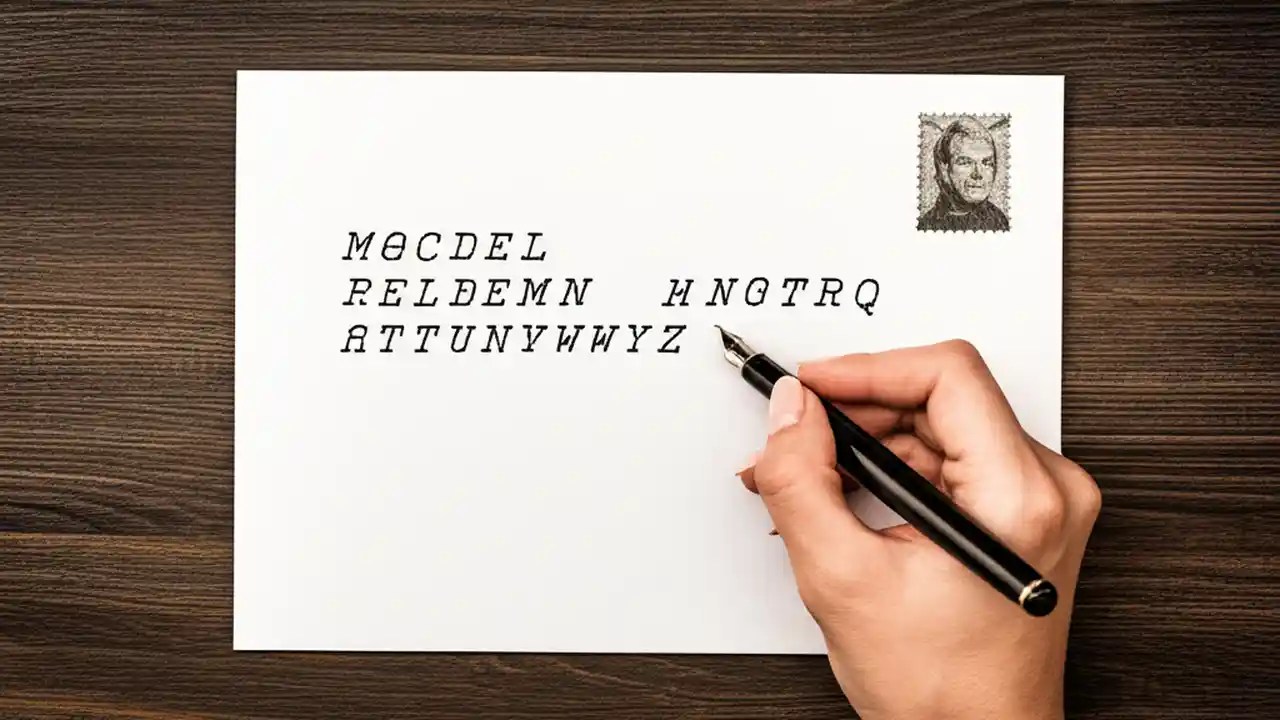 MOCDEL
RELDEMN HNOTRQ
ATTUNYWWYZ